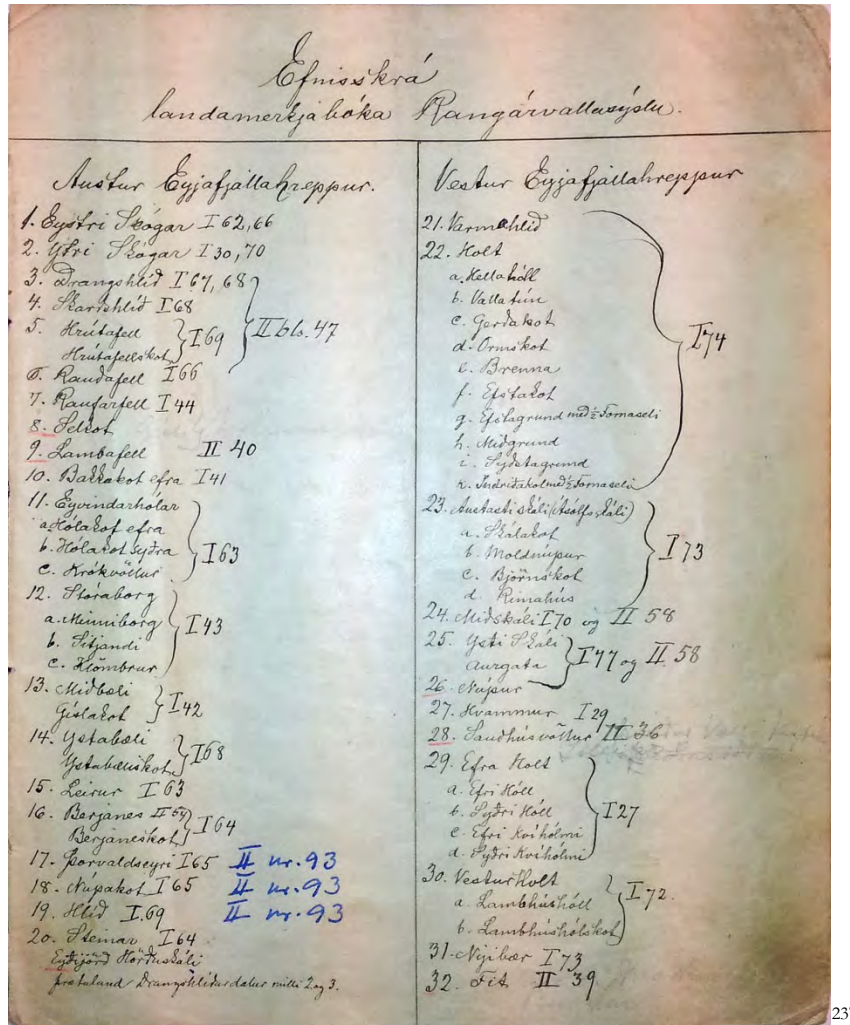 Efnisskrá
landamerkjabóka Rangárvallasýslu.
Austur Eyjafjallahreppur.
1. Eystri Skógar I 62,66
2. Ytri Skógar I 30,70
3. Drangshlíð I 67, 68
4. Skarðshlíð I 68
5. Hrútafell
Hrútafellskot } I 69
} II bls. 47
6. Rauðafell I 66
7. Raufarfell I 44
8. Selkot
9. Lambafell II 40
10. Bakkakot efra I 41
11. Eyvindarhólar
a. Hólakot efra
b. Hólakot syðra
c. Krókvöllur
} I 63
12. Stóraborg
a. Minniborg
b. Sitjandi
c. Klömbrur
} I 43
13. Miðbæli
Gíslakot } I 42
14. Ystabæli
Ystabæliskot } I 68
15. Leirur I 63
16. Berjanes II 54
Berjaneskot } I 64
17. Þorvaldseyri I 65 II nr. 93
18. Núpakot I 65 II nr. 93
19. Hlíð I 69 II nr. 93
20. Steinar I 64
Eyðijörð Hörðuskáli
þrætuland Drangshlíðardalur milli 2 og 3.
Vestur Eyjafjallahreppur
21. Varmahlíð
22. Holt
a. Hellahóll
b. Vallatún
c. Gerðakot
d. Ormskot
e. Brenna
f. Efstakot
g. Efstagrund með ½ Fornaseli
h. Miðgrund
i. Syðstagrund
k. Indriðakot með ½ Fornaseli
} I 74
23. Austasti skáli (Ásólfsskáli)
a. Skálakot
b. Moldnúpur
c. Björnskot
d. Rimahús
} I 73
24. Miðskáli I 70 og II 58
25. Ysti Skáli
Aurgata
} I 77 og II 58
26. Núpur
27. Hvammur I 29
28. Sauðhúsvöllur II 36
29. Efra Holt
a. Efri Hóll
b. Syðri Hóll
c. Efri Kvíhólmi
d. Syðri Kvíhólmi
} I 27
30. Vestur Holt
a. Lambhúshóll
b. Lambhúshólskot
} I 72.
31. Nýibær I 73
32. Fit II 39